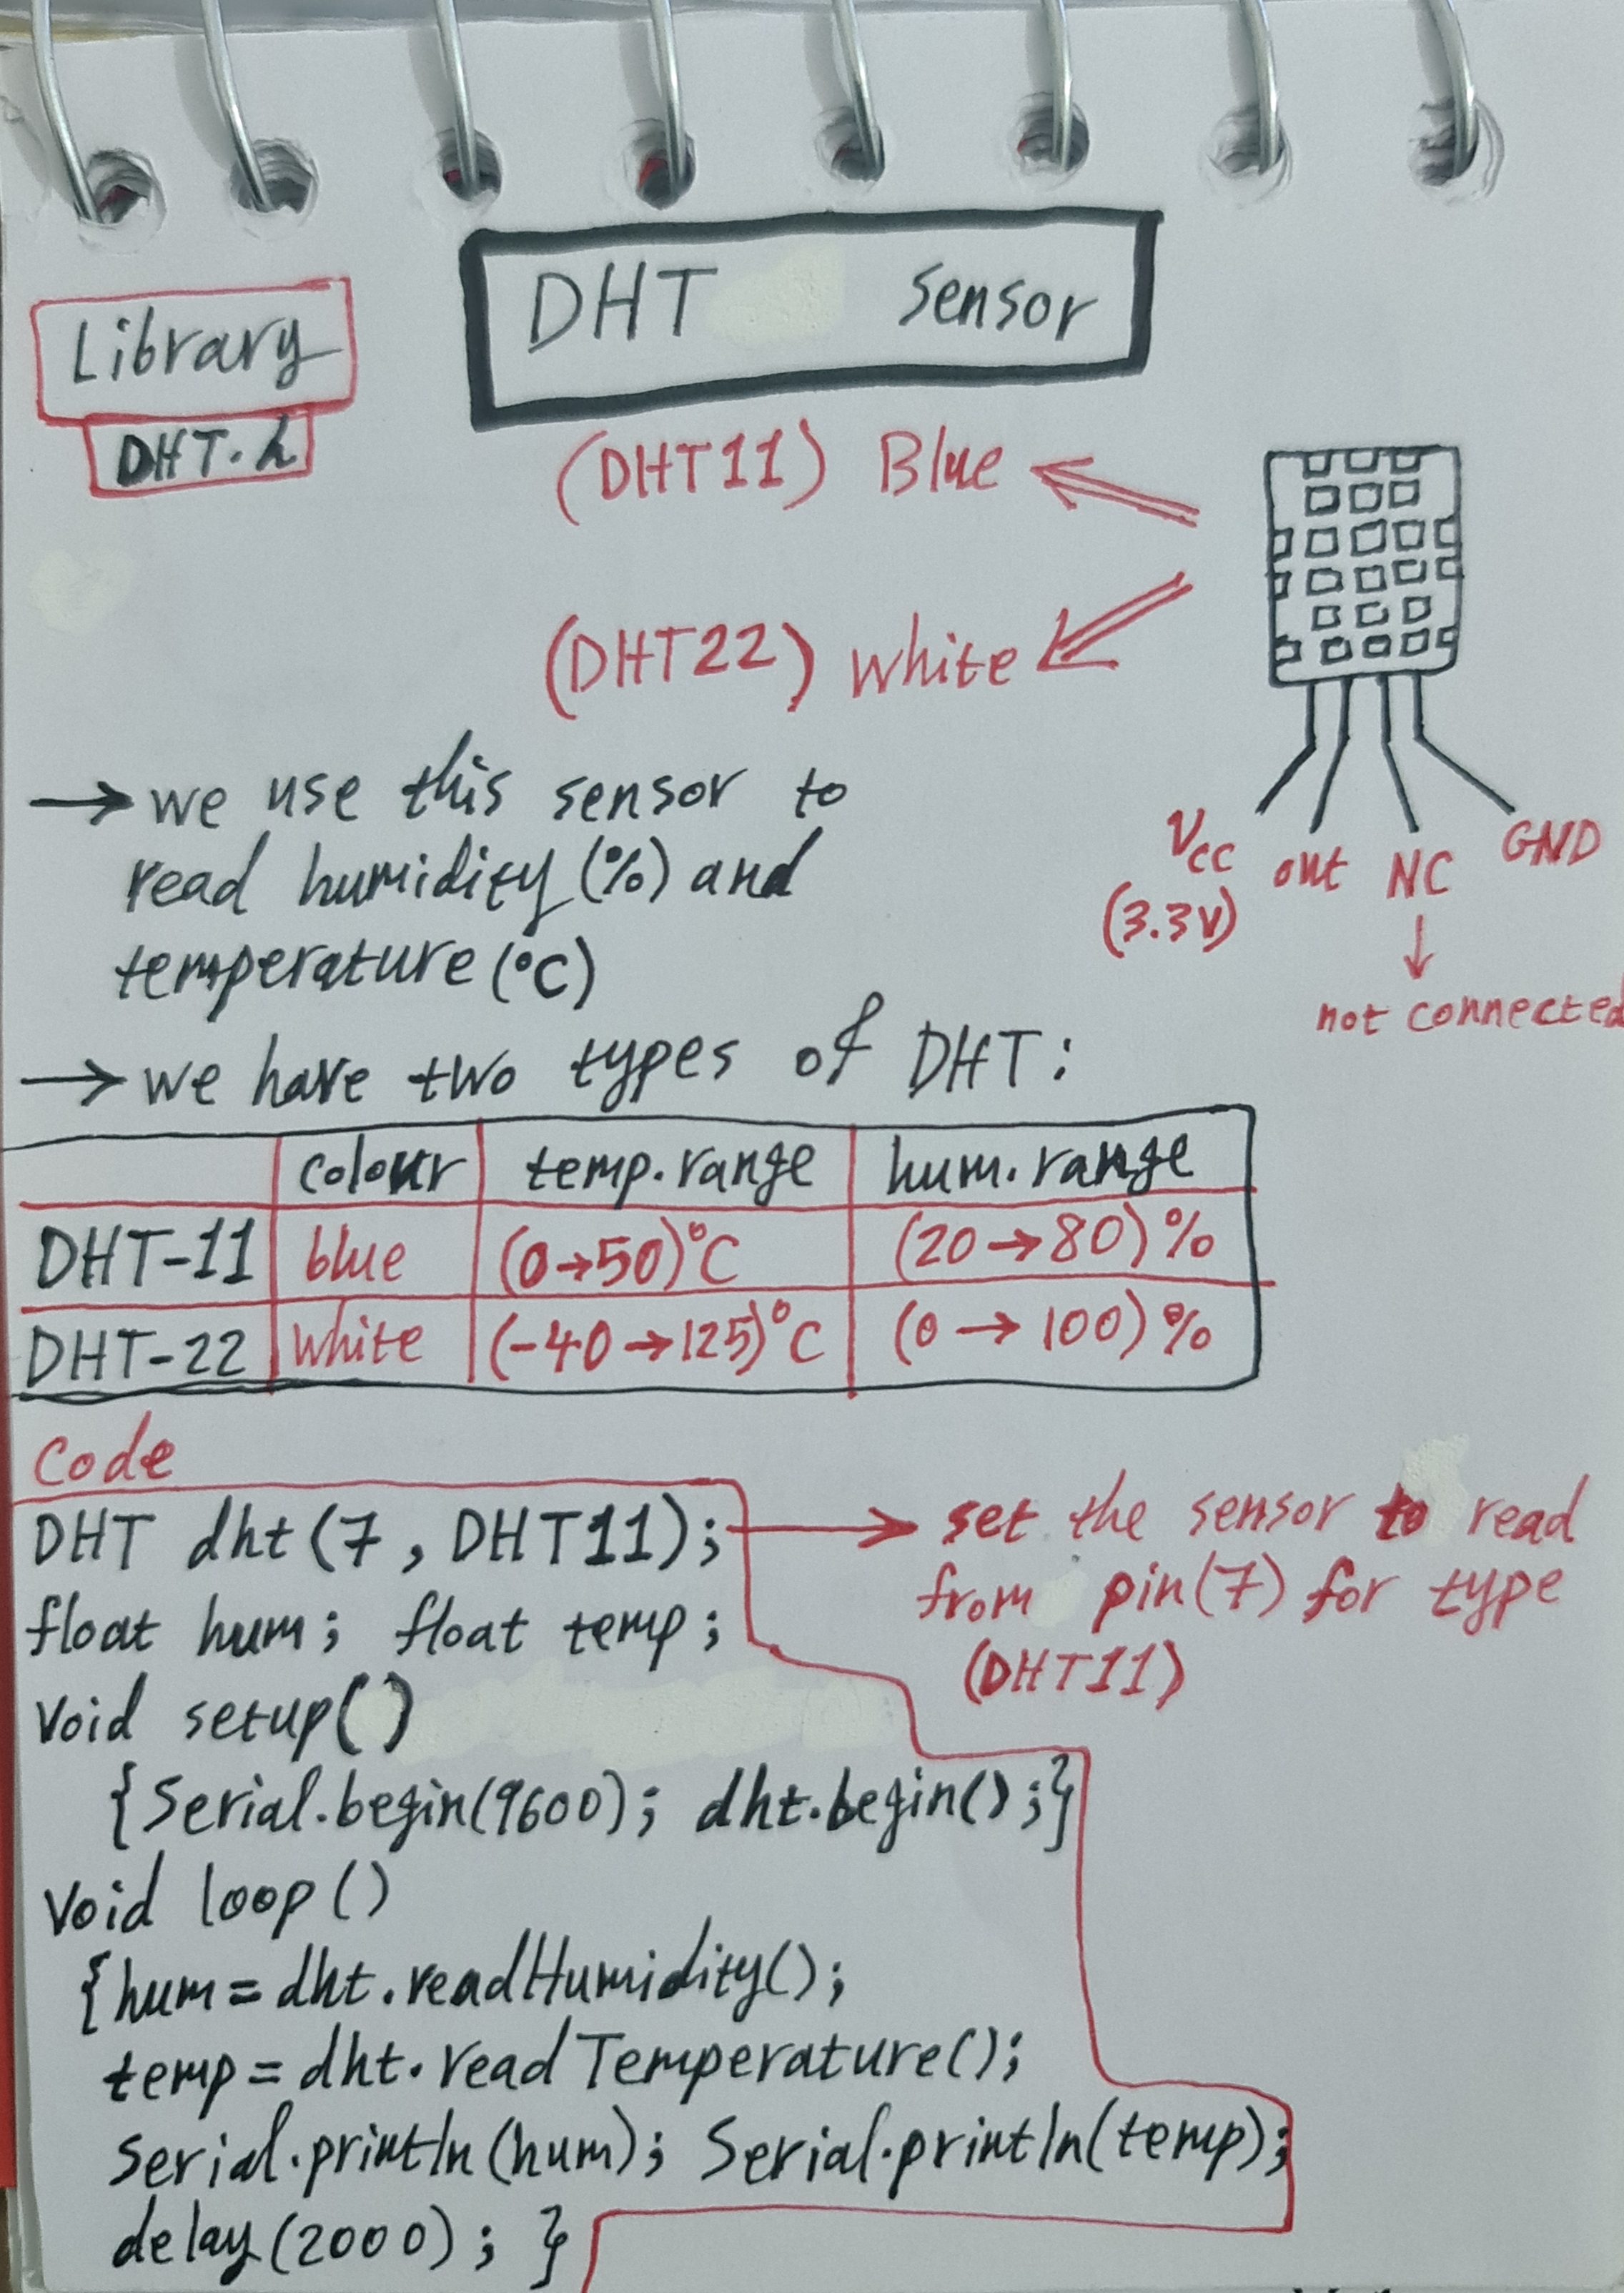 DHT sensor
Library
DHT.h
(DHT11) Blue
(DHT22) white
Vcc out NC GND
(3.3V)
↓
not connected
→ we use this sensor to
read humidity (%) and
temperature (°C)
→ we have two types of DHT:
colour temp.range hum.range
DHT-11 blue (0→50)°C (20→80)%
DHT-22 white (-40→125)°C (0→100)%
Code
DHT dht(7, DHT11); → set the sensor to read
from pin(7) for type
(DHT11)
float hum; float temp;
void setup()
{Serial.begin(9600); dht.begin();}
void loop()
{hum = dht.readHumidity();
temp = dht.readTemperature();
serial.println(hum); Serial.println(temp);
delay(2000); }